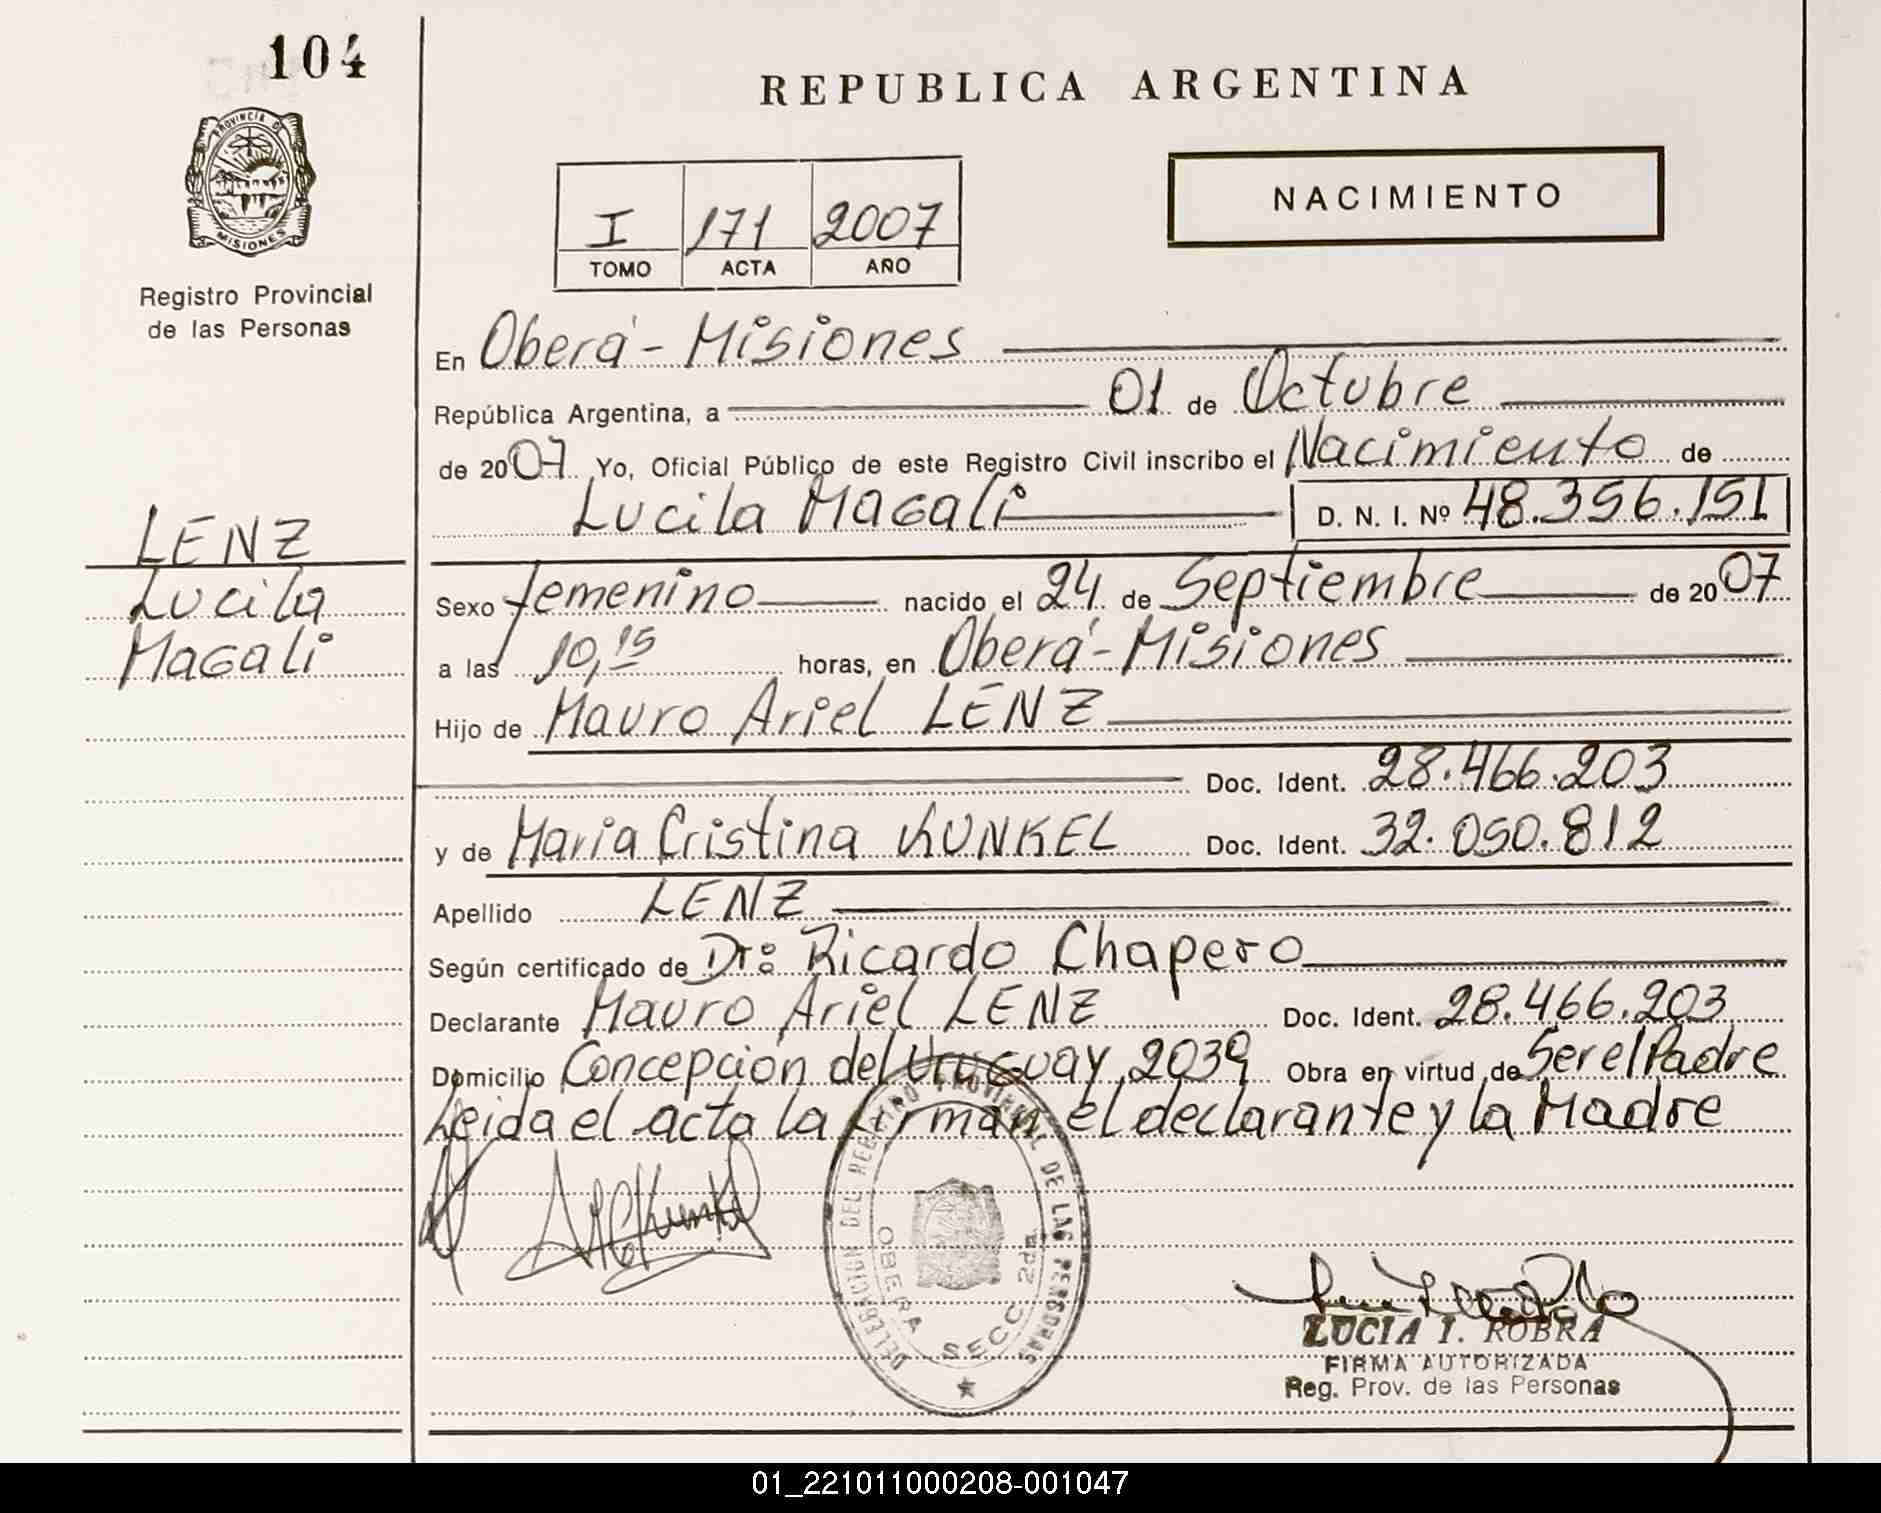 104
PROVINCIA DE
MISIONES
Registro Provincial
de las Personas
LENZ
Lucila
Magali
REPUBLICA ARGENTINA
I 171 2007
TOMO ACTA AÑO
NACIMIENTO
En Oberá - Misiones
República Argentina, a 01 de Octubre
de 2007 Yo, Oficial Público de este Registro Civil inscribo el Nacimiento de
Lucila Magali D. N. I. Nº 48.356.151
Sexo femenino nacido el 24 de Septiembre de 2007
a las 10,15 horas, en Oberá - Misiones
Hijo de Mauro Ariel LENZ
Doc. Ident. 28.466.203
y de Maria Cristina KUNKEL Doc. Ident. 32.050.812
Apellido LENZ
Según certificado de Dr: Ricardo Chapero
Declarante Mauro Ariel LENZ Doc. Ident. 28.466.203
Domicilio Concepción del Uruguay 2039 Obra en virtud de Ser el Padre
Leida el acta la firman el declarante y la Madre
DELEGACION DEL REGISTRO PROVINCIAL DE LAS PERSONAS
OBERA SECC 2da
LUCIA I. ROBRA
FIRMA AUTORIZADA
Reg. Prov. de las Personas
01_221011000208-001047